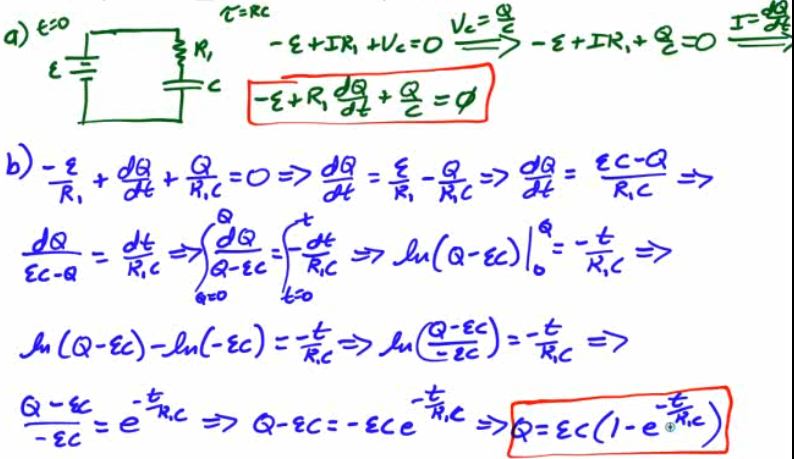 a) t=0 τ=RC
ε R₁ C -ε+IR₁+Vc=0 Vc=Q/C ⟹ -ε+IR₁+Q/C=0 I=dQ/dt ⟹
-ε+R₁ dQ/dt + Q/C = 0
b) -ε/R₁ + dQ/dt + Q/R₁C = 0 => dQ/dt = ε/R₁ - Q/R₁C => dQ/dt = (εC-Q)/R₁C =>
dQ/(εC-Q) = dt/R₁C => ∫_{Q=0}^{Q} dQ/(Q-εC) = ∫_{t=0}^{t} -dt/R₁C => ln(Q-εC)|₀^Q = -t/R₁C =>
ln(Q-εC)-ln(-εC) = -t/R₁C => ln((Q-εC)/(-εC)) = -t/R₁C =>
(Q-εC)/(-εC) = e^(-t/R₁C) => Q-εC = -εC e^(-t/R₁C) => Q=εC(1-e^(-t/R₁C))